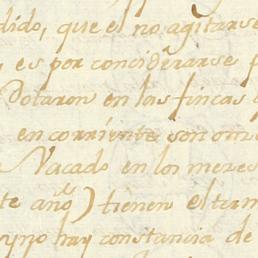 dido, que el no agitarse
es por conciderarse
Dotaron en las fincas
en corriente son otr
Vacado en los meses
te año) tienen el term
hay constancia de